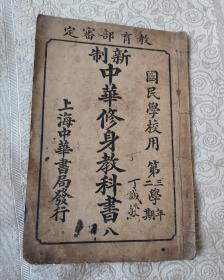 教育部審定
國民學校用 第三學年
第二學期
新制
中華修身教科書 八
上海中華書局發行